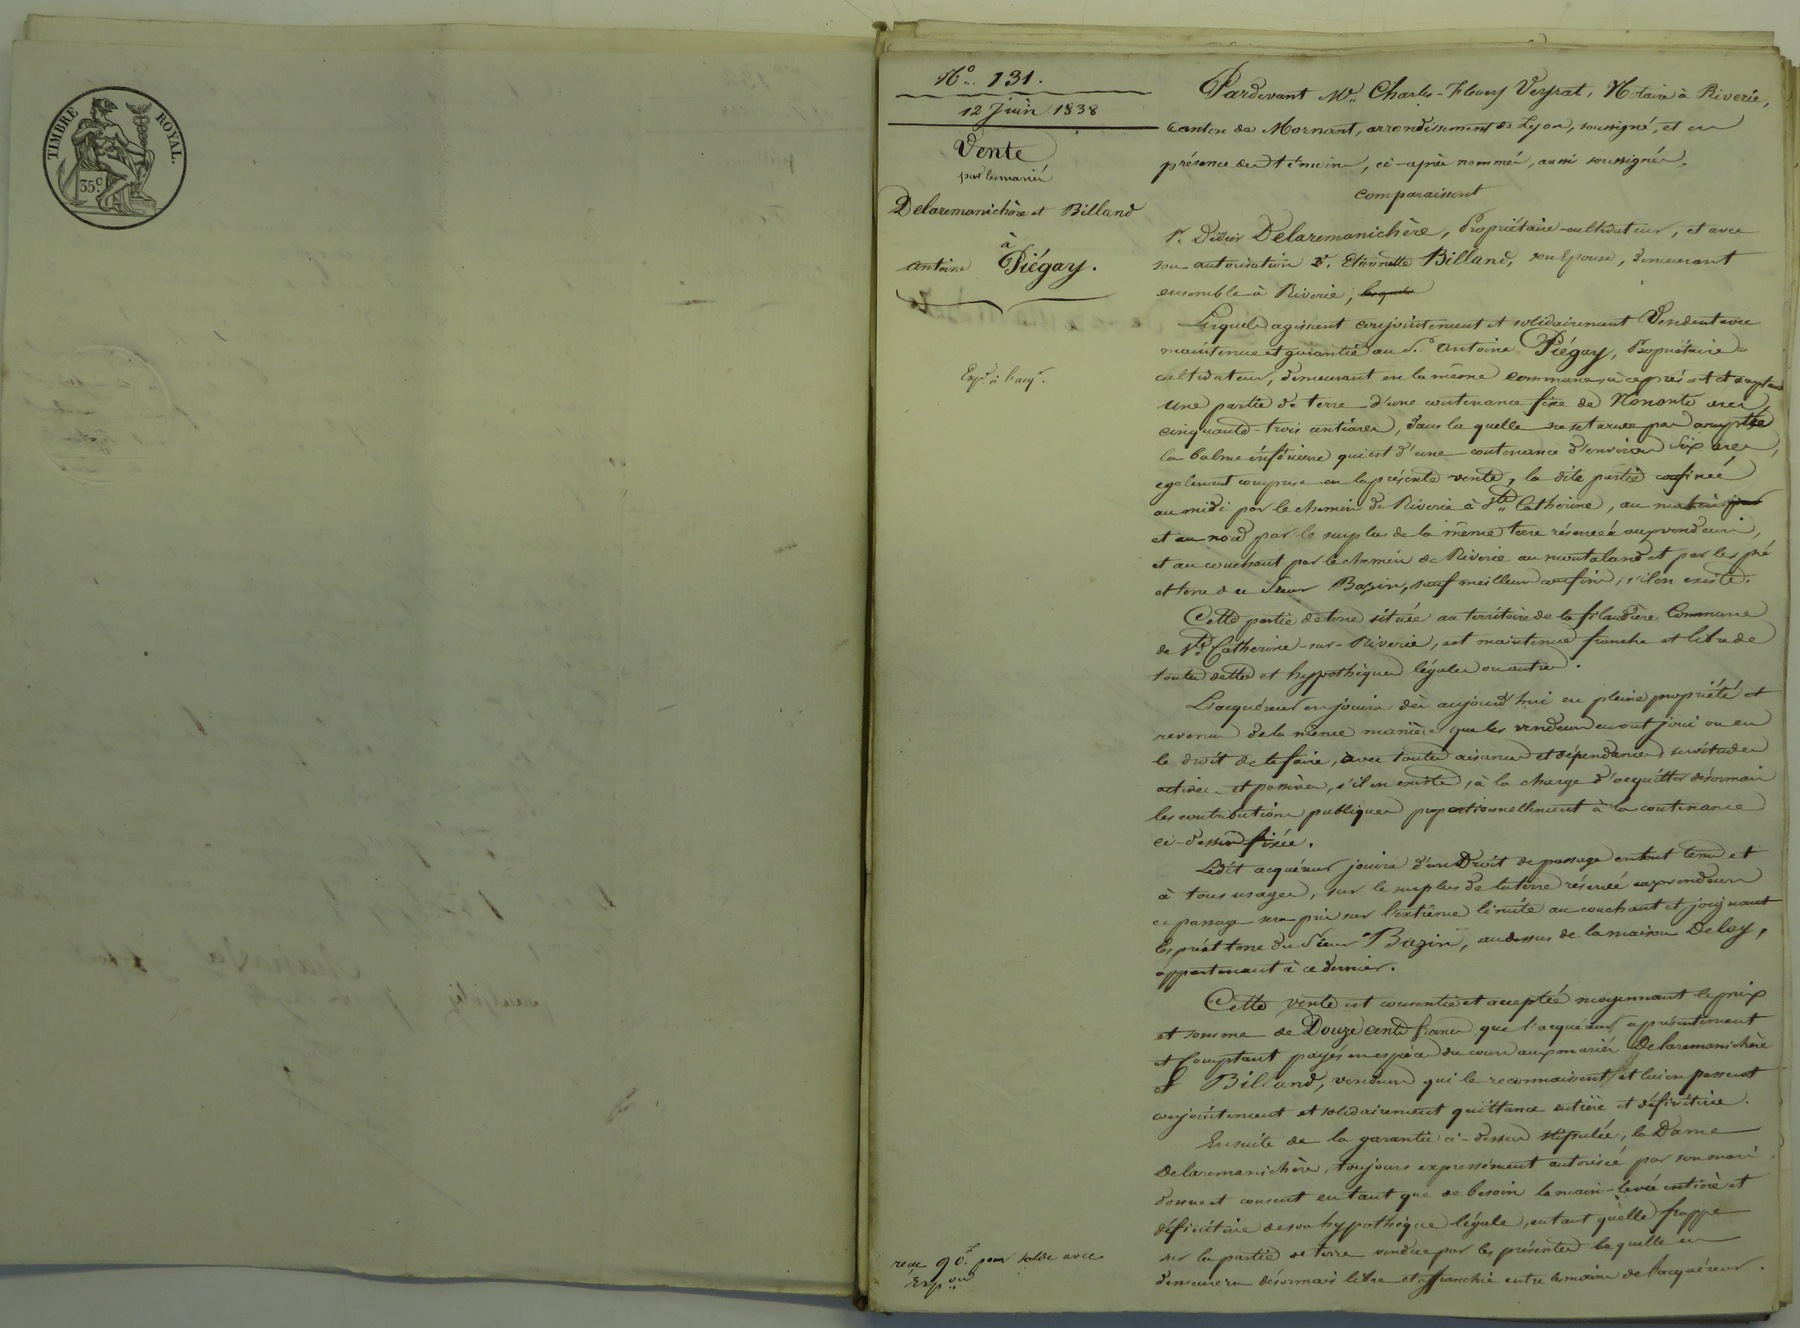 TIMBRE ROYAL.
35c
No. 131.
12 Juin 1838
Vente
par les mariés
Delaremanichère et Billand
à
Antoine Piégay.
Expon à l'acqr.
recu 90c pour solde avec
Expon
Pardevant Me. Charles-Fleury Veyrat, Notaire à Riverie,
canton de Mornant, arrondissement de Lyon, soussigné, et en
présence des témoins, ci-après nommés, aussi soussignés.
Comparaissent
1o. Didier Delaremanichère, Propriétaire-cultivateur, et avec
son autorisation 2o. Etiennette Billand, son Epouse, demeurant
ensemble à Riverie,
Lesquels agissant conjointement et solidairement Vendent avec
maintenue et garantie au Sr. Antoine Piégay, Propriétaire-
cultivateur, demeurant en la même commune, à ce présent et acceptant
Une partie de terre d'une contenance fixe de Nonante ares
cinquante-trois centiares, dans la quelle
la balme inférieure qui est d'une contenance d'environ Six ares,
également comprise en la présente vente, la dite partie confinée
au midi par le chemin de Riverie à Ste. Catherine, au matin
et au nord par le surplus de la même terre réservée aux vendeurs,
et au couchant par le chemin de Riverie au montaland et par les pré
et terre du Sieur Bazin, sauf meilleurs confins, s'il en existe.
Cette partie de terre située au territoire de la filandière Commune
de Ste. Catherine-sur-Riverie, est maintenue franche et libre de
toutes dettes et hypothèques légales ou autres.
L'acquéreur en jouira dès aujourd'hui en pleine propriété et
revenus de la même manière que les vendeurs en ont joui ou eu
le droit de le faire, avec toutes aisances et dépendances servitudes
actives et passives, s'il en existe, à la charge d'acquitter désormais
les contributions publiques proportionnellement à la contenance
ci-dessus fixée.
Ledit acquéreur jouira d'un Droit de passage en tout tems et
à tous usages, sur le surplus de la terre réservée aux vendeurs
ce passage sera pris sur l'extrême limite au couchant et joignant
les pré et terre du Sieur Bazin, au dessus de la maison Delay,
appartenant à ce dernier.
Cette vente est consentie et acceptée moyennant le prix
et somme de Douze cents francs que l'acquéreur a présentement
et Comptant payés en espèces du cours aux mariés Delaremanichère
et Billand, vendeurs qui le reconnaissent et lui en passent
conjointement et solidairement quittance entière et définitive.
Ensuite de la garantie ci-dessus stipulée, la Dame
Delaremanichère, toujours expressément autorisée par son mari
donne et consent en tant que de besoin la main-levée entière et
définitive de son hypothèque légale, en tant qu'elle frappe
sur la partie de terre vendue par les présentes laquelle en
demeurera désormais libre et affranchie entre les mains de l'acquéreur.